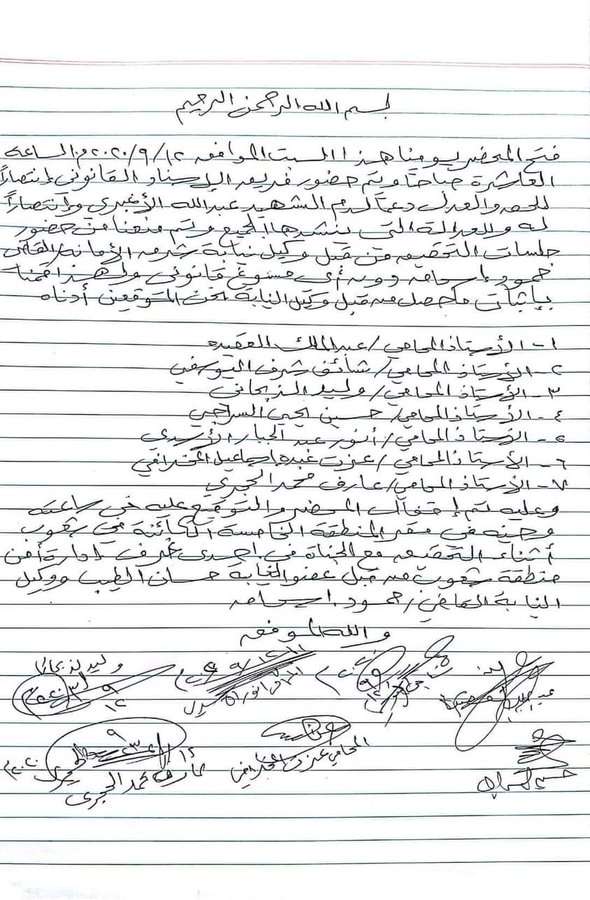 بسم الله الرحمن الرحيم
فتح المحضر يومنا هذا السبت الموافق ٢٠٢٠/٩/١٢م الساعة
العاشرة صباحاً وتم حضور فريق الإسناد القانوني إنتصاراً
للحق والعدل دعماً لدم الشهيد عبدالله الأغبري وإنتصاراً
له وللعدالة التي ينشدها الجميع وتم منعنا من حضور
جلسات التحقيق من قبل وكيل نيابة شرق الأمانة القاضي
حمود إسحاق دون أي مسوغ قانوني ولهذا قمنا
بإثبات ما حصل من قبل وكيل النيابة نحن الموقعين أدناه
١- الأستاذ المحامي/ عبدالملك العقيدة
٢- الأستاذ المحامي/ شائف شرف اليوسفي
٣- الأستاذ المحامي/ وليد الذبحاني
٤- الأستاذ المحامي/ حسين يحيى السراجي
٥- الأستاذ المحامي/ أنور عبدالجبار الأسدي
٦- الأستاذ المحامي/ عزت عبده إسماعيل المخرافي
٧- الأستاذ المحامي/ عارف محمد الحجري
وعليه تم إقفال المحضر والتوقيع عليه في ساعته
وحينه في مقر المنطقة الخامسة الكائنة في شعوب
أثناء التحقيق مع الجناة في احدى غرف إدارة أمن
منطقة شعوب من قبل عضو النيابة حسان الطيب ووكيل
النيابة القاضي/ حمود إسحاق
والله الموفق
وليد الذبحاني
٩
١٢
٩
١٢
عارف محمد الحجري